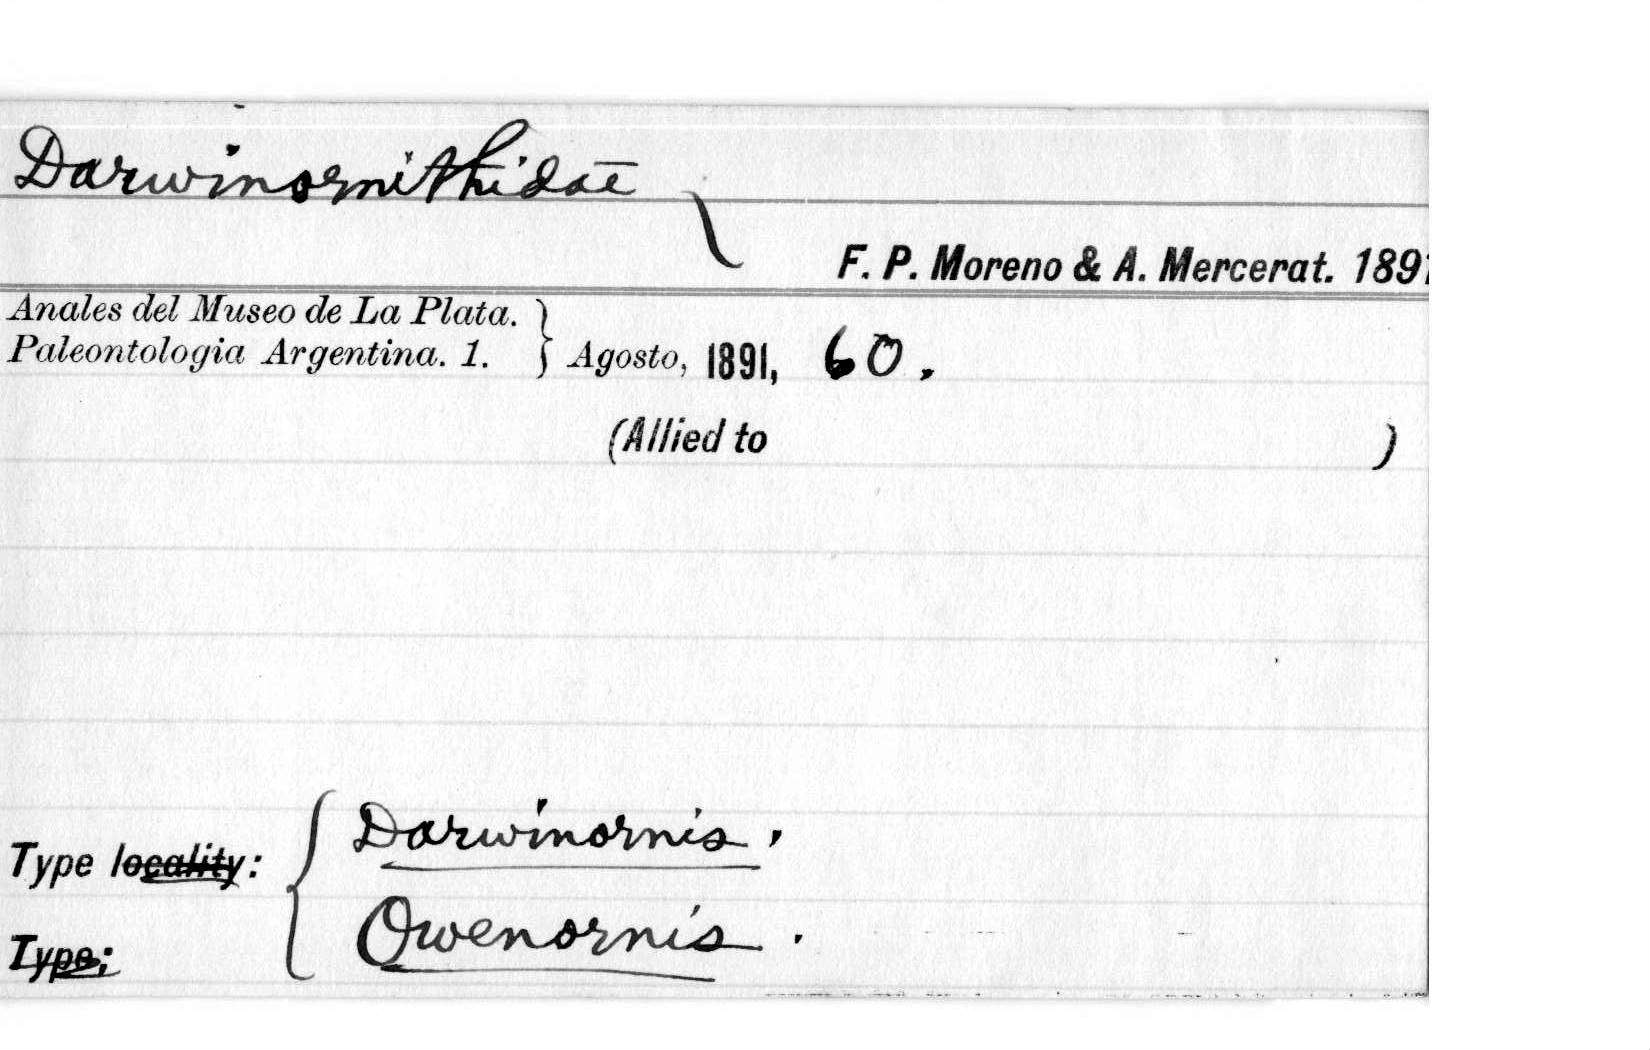 Darwinornithidae
F. P. Moreno & A. Mercerat. 1891
Anales del Museo de La Plata.
Paleontologia Argentina. 1. } Agosto, 1891, 60.
(Allied to )
Type locality: { Darwinornis,
Type: Owenornis.